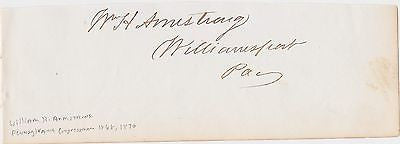 Wm H Armstrong
Williamsport
Pa
William H. Armstrong
Pennsylvania Congressman 1868, 1870